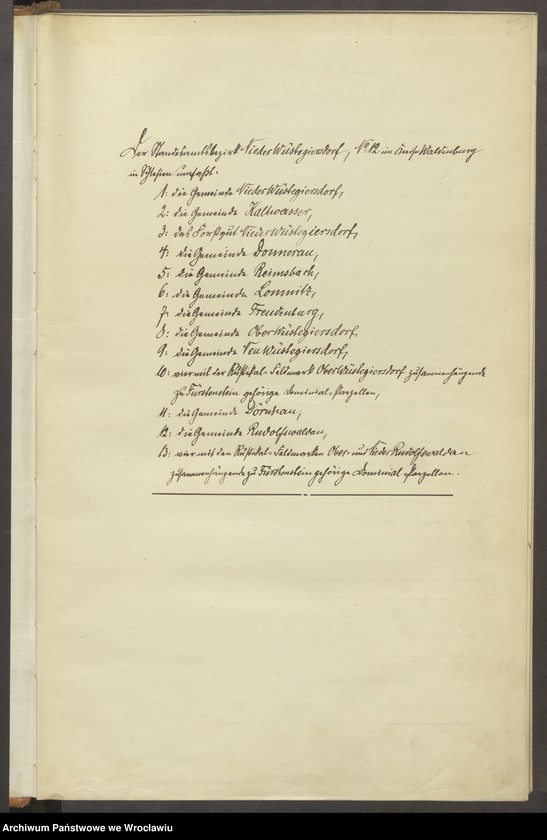 Der Standesamtsbezirk Nieder Wüstegiersdorf, No 12 im Kreise Waldenburg
in Schlesien umfaßt:
1: die Gemeinde Nieder Wüstegiersdorf,
2: die Gemeinde Kaltwasser,
3: das Forstgut Nieder Wüstegiersdorf,
4: die Gemeinde Donnerau,
5: die Gemeinde Reimsbach,
6: die Gemeinde Lomnitz,
7: die Gemeinde Freudenburg,
8: die Gemeinde Ober Wüstegiersdorf
9: die Gemeinde Neu Wüstegiersdorf,
10: vier mit der Rustikal-Feldmark Ober Wüstegiersdorf zusammenhängende
zu Fürstenstein gehörige Dominial-Parzellen,
11: die Gemeinde Dörnhau,
12: die Gemeinde Rudolfswaldau,
13: vier mit den Rustikal-Feldmarken Ober- und Nieder Rudolfswaldau
zusammenhängende zu Fürstenstein gehörige Dominial-Parzellen.
Archiwum Państwowe we Wrocławiu